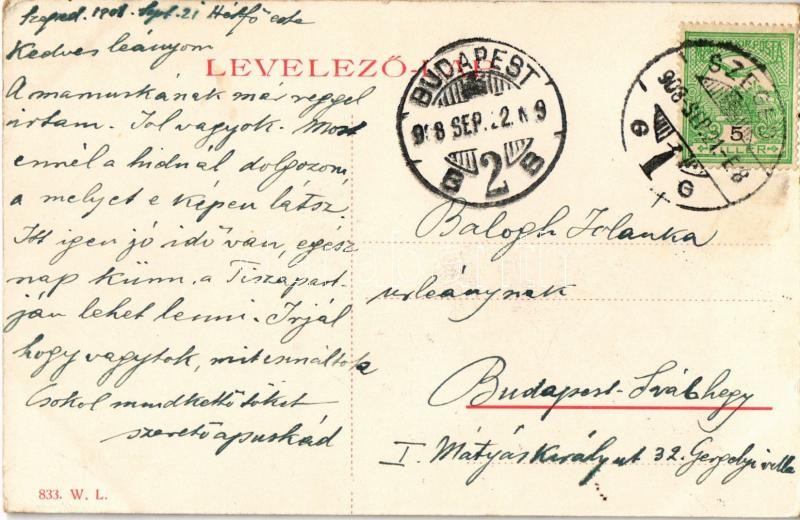 Szeged. 1908. Sept. 21 Hétfő este
Kedves leányom
LEVELEZŐ-LAP
A mamuskának már reggel
írtam. Jól vagyok. Most
ennél a hidnál dolgozom,
a melyet e képen látsz.
Itt igen jó idő van, egész
nap künn a Tiszapart-
ján lehet lenni. Irjál
hogy vagytok, mit csináltok
Csókol mindkettőtöket
szerető apuskád
833. W. L.
BUDAPEST
908 SEP. 22. N 9
B 2 B
SZEGED
908 SEP 21-E8
G 1 G
5
FILLER
Balogh Jolánka
urleánynak
Budapest-Svábhegy
I. Mátyás Király ut 32. Gergelyi villa